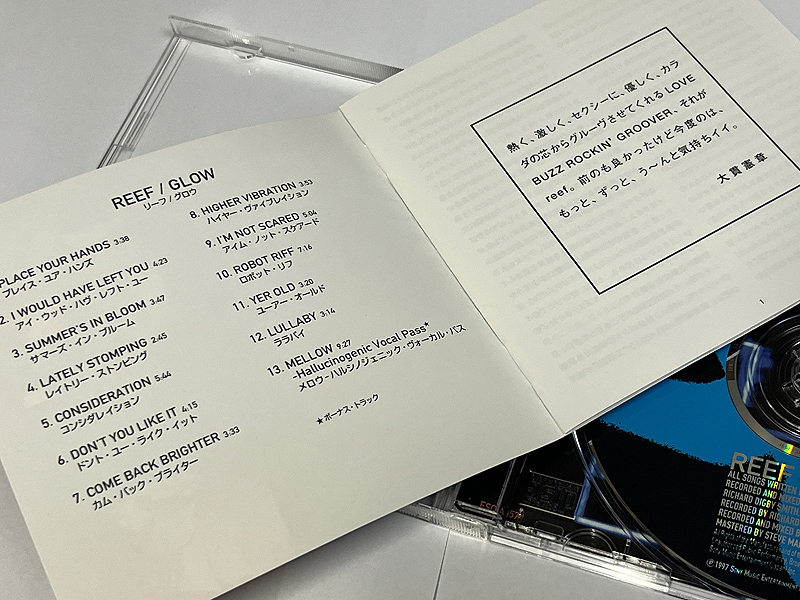 REEF / GLOW
リーフ / グロウ
PLACE YOUR HANDS 3:38
プレイス・ユア・ハンズ
2. I WOULD HAVE LEFT YOU 4:23
アイ・ウッド・ハヴ・レフト・ユー
3. SUMMER'S IN BLOOM 3:47
サマーズ・イン・ブルーム
4. LATELY STOMPING 2:45
レイトリー・ストンピング
5. CONSIDERATION 5:44
コンシダレイション
6. DON'T YOU LIKE IT 4:15
ドント・ユー・ライク・イット
7. COME BACK BRIGHTER 3:33
カム・バック・ブライター
8. HIGHER VIBRATION 3:53
ハイヤー・ヴァイブレイション
9. I'M NOT SCARED 5:04
アイム・ノット・スケアード
10. ROBOT RIFF 7:16
ロボット・リフ
11. YER OLD 3:20
ユーアー・オールド
12. LULLABY 3:14
ララバイ
13. MELLOW 9:27
-Hallucinogenic Vocal Pass*
メロウ-ハルシノジェニック・ヴォーカル・パス
★ボーナス・トラック
熱く、激しく、セクシーに、優しく、カラ
ダの芯からグルーヴさせてくれる LOVE
BUZZ ROCKIN' GROOVER、それが
reef。前のも良かったけど今度のは、
もっと、ずっと、う〜んと気持ちイイ。
大貫憲章
1
REEF
ALL SONGS WRITTEN
RECORDED AND MIXED
RICHARD DIGBY SMITH
RECORDED BY RICHARD
RECORDED AND MIXED B
MASTERED BY STEVE MA
℗ 1997 SONY MUSIC ENTERTAINMENT